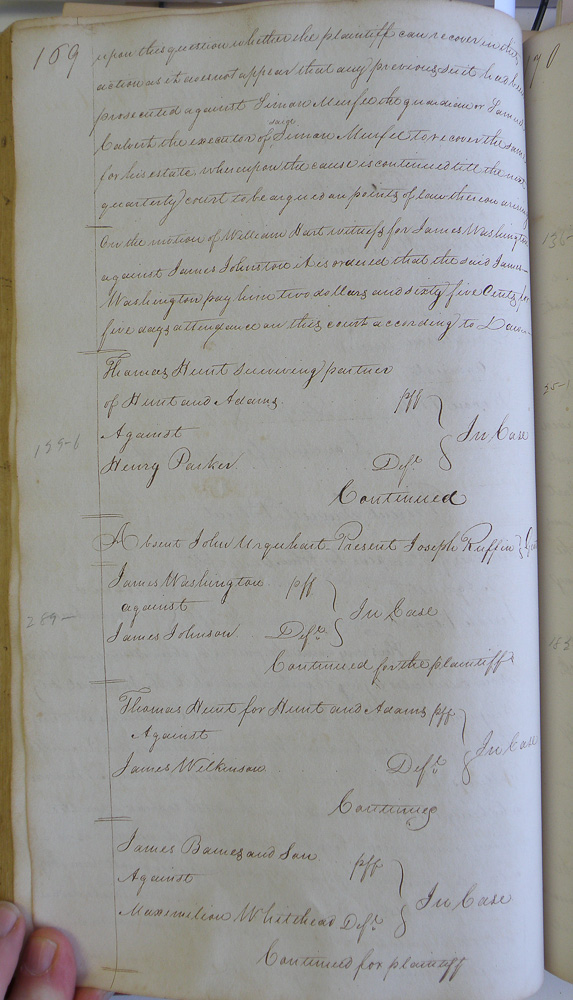 169
upon this question whether the plaintiff can recover in this
action as it does not appear that any previous suit had been
prosecuted against Simon Murfee the guardian or Samuel
Calvert the executor of said Simon Murfee to recover the same
for his estate whereupon the cause is continued till the next
quarterly court to be argued on points of law thereon arising
On the motion of William Hart witness for James Washington
against James Johnston it is ordered that the said James
Washington pay him two dollars and sixty five Cents for
five days attendance on this court according to Law
Thomas Hunt surviving partner
of Hunt and Adams plff
Against In Case
Henry Parker Deft
Continued
155-6
Absent John Urquhart Present Joseph Ruffin
James Washington plff
against In Case
James Johnson Deft
289-
Continued for the plaintiff
Thomas Hunt for Hunt and Adams plff
Against In Case
James Wilkinson Deft
Continued
James Barnes and Son plff
Against In Case
Maxemelion Whitehead Deft
Continued for plaintiff